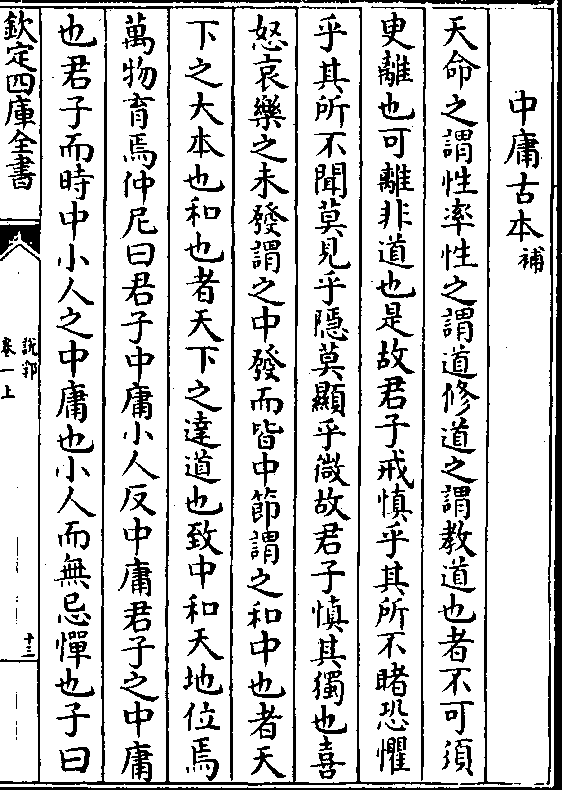 中庸古本補
天命之謂性率性之謂道修道之謂教道也者不可須
臾離也可離非道也是故君子戒慎乎其所不睹恐懼
乎其所不聞莫見乎隱莫顯乎微故君子慎其獨也喜
怒哀樂之未發謂之中發而皆中節謂之和中也者天
下之大本也和也者天下之達道也致中和天地位焉
萬物育焉仲尼曰君子中庸小人反中庸君子之中庸
也君子而時中小人之中庸也小人而無忌憚也子曰
欽定四庫全書
說郛
卷一上
十三